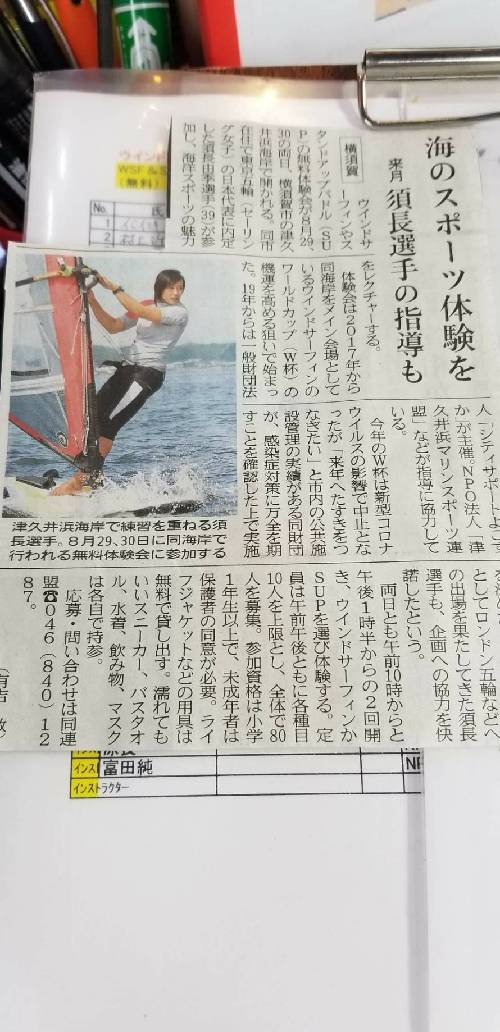 海のスポーツ体験を
来月 須長選手の指導も
横須賀
ウインドサ
ーフィンやス
タンドアップパドル（SU
P）の無料体験会が8月29、
30の両日、横須賀市の津久
井浜海岸で開かれる。同市
在住で東京五輪（セーリン
グ女子）の日本代表に内定
した須長由季選手（39）が参
加し、海洋スポーツの魅力
をレクチャーする。
体験会は2017年から
同海岸をメイン会場として
いるウインドサーフィンの
ワールドカップ（W杯）の
機運を高める狙いで始まっ
た。19年からは一般財団法
人「シティサポートよこす
か」が主催。NPO法人「津
久井浜マリンスポーツ連
盟」などが指導に協力して
いる。
今年のW杯は新型コロナ
ウイルスの影響で中止とな
ったが「来年へたすきをつ
なぎたい」と市内の公共施
設管理の実績がある同財団
が、感染症対策に万全を期
すことを確認した上で実施
としてロンドン五輪などへ
の出場を果たしてきた須長
選手も、企画への協力を快
諾したという。
両日とも午前10時からと
午後1時半からの2回開
き、ウインドサーフィンか
SUPを選び体験する。定
員は午前午後ともに各種目
10人を上限とし、全体で80
人を募集。参加資格は小学
1年生以上で、未成年者は
保護者の同意が必要。ライ
フジャケットなどの用具は
無料で貸し出す。濡れても
いいスニーカー、バスタオ
ル、水着、飲み物、マスク
は各自で持参。
応募・問い合わせは同連
盟☎046（840）12
87。
津久井浜海岸で練習を重ねる須
長選手。8月29、30日に同海岸で
行われる無料体験会に参加する
ウインド
WSF & S
（無料）
No.
1
2
インスト
富田純
インストラクター